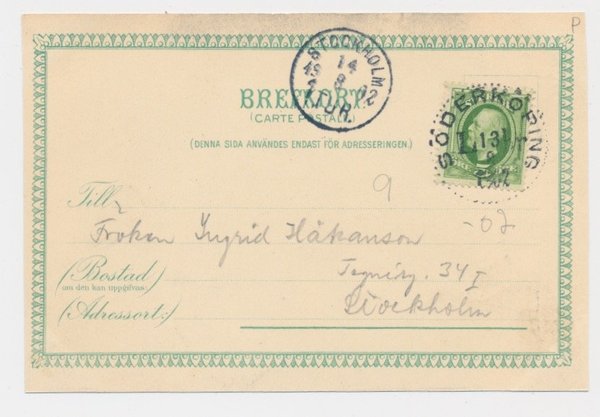 P
STOCKHOLM 2
14
8
02
1 TUR.
BREFKORT
(CARTE POSTALE)
(DENNA SIDA ANVÄNDES ENDAST FÖR ADRESSERINGEN.)
SÖDERKÖPING
13
8
9
Till
-02
Fröken Ingrid Håkanson
(Bostad)
(om den kan uppgifvas)
34 I
(Adressort:)
Stockholm